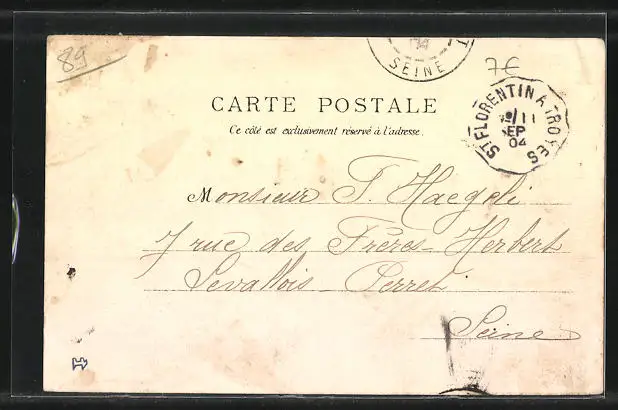 89
SEINE
7€
CARTE POSTALE
Ce côté est exclusivement réservé à l'adresse.
ST FLORENTIN A TROYES
11
SEP
04
Monsieur F. Haegeli
7 rue des Frères-Herbert
Levallois-Perret
Seine